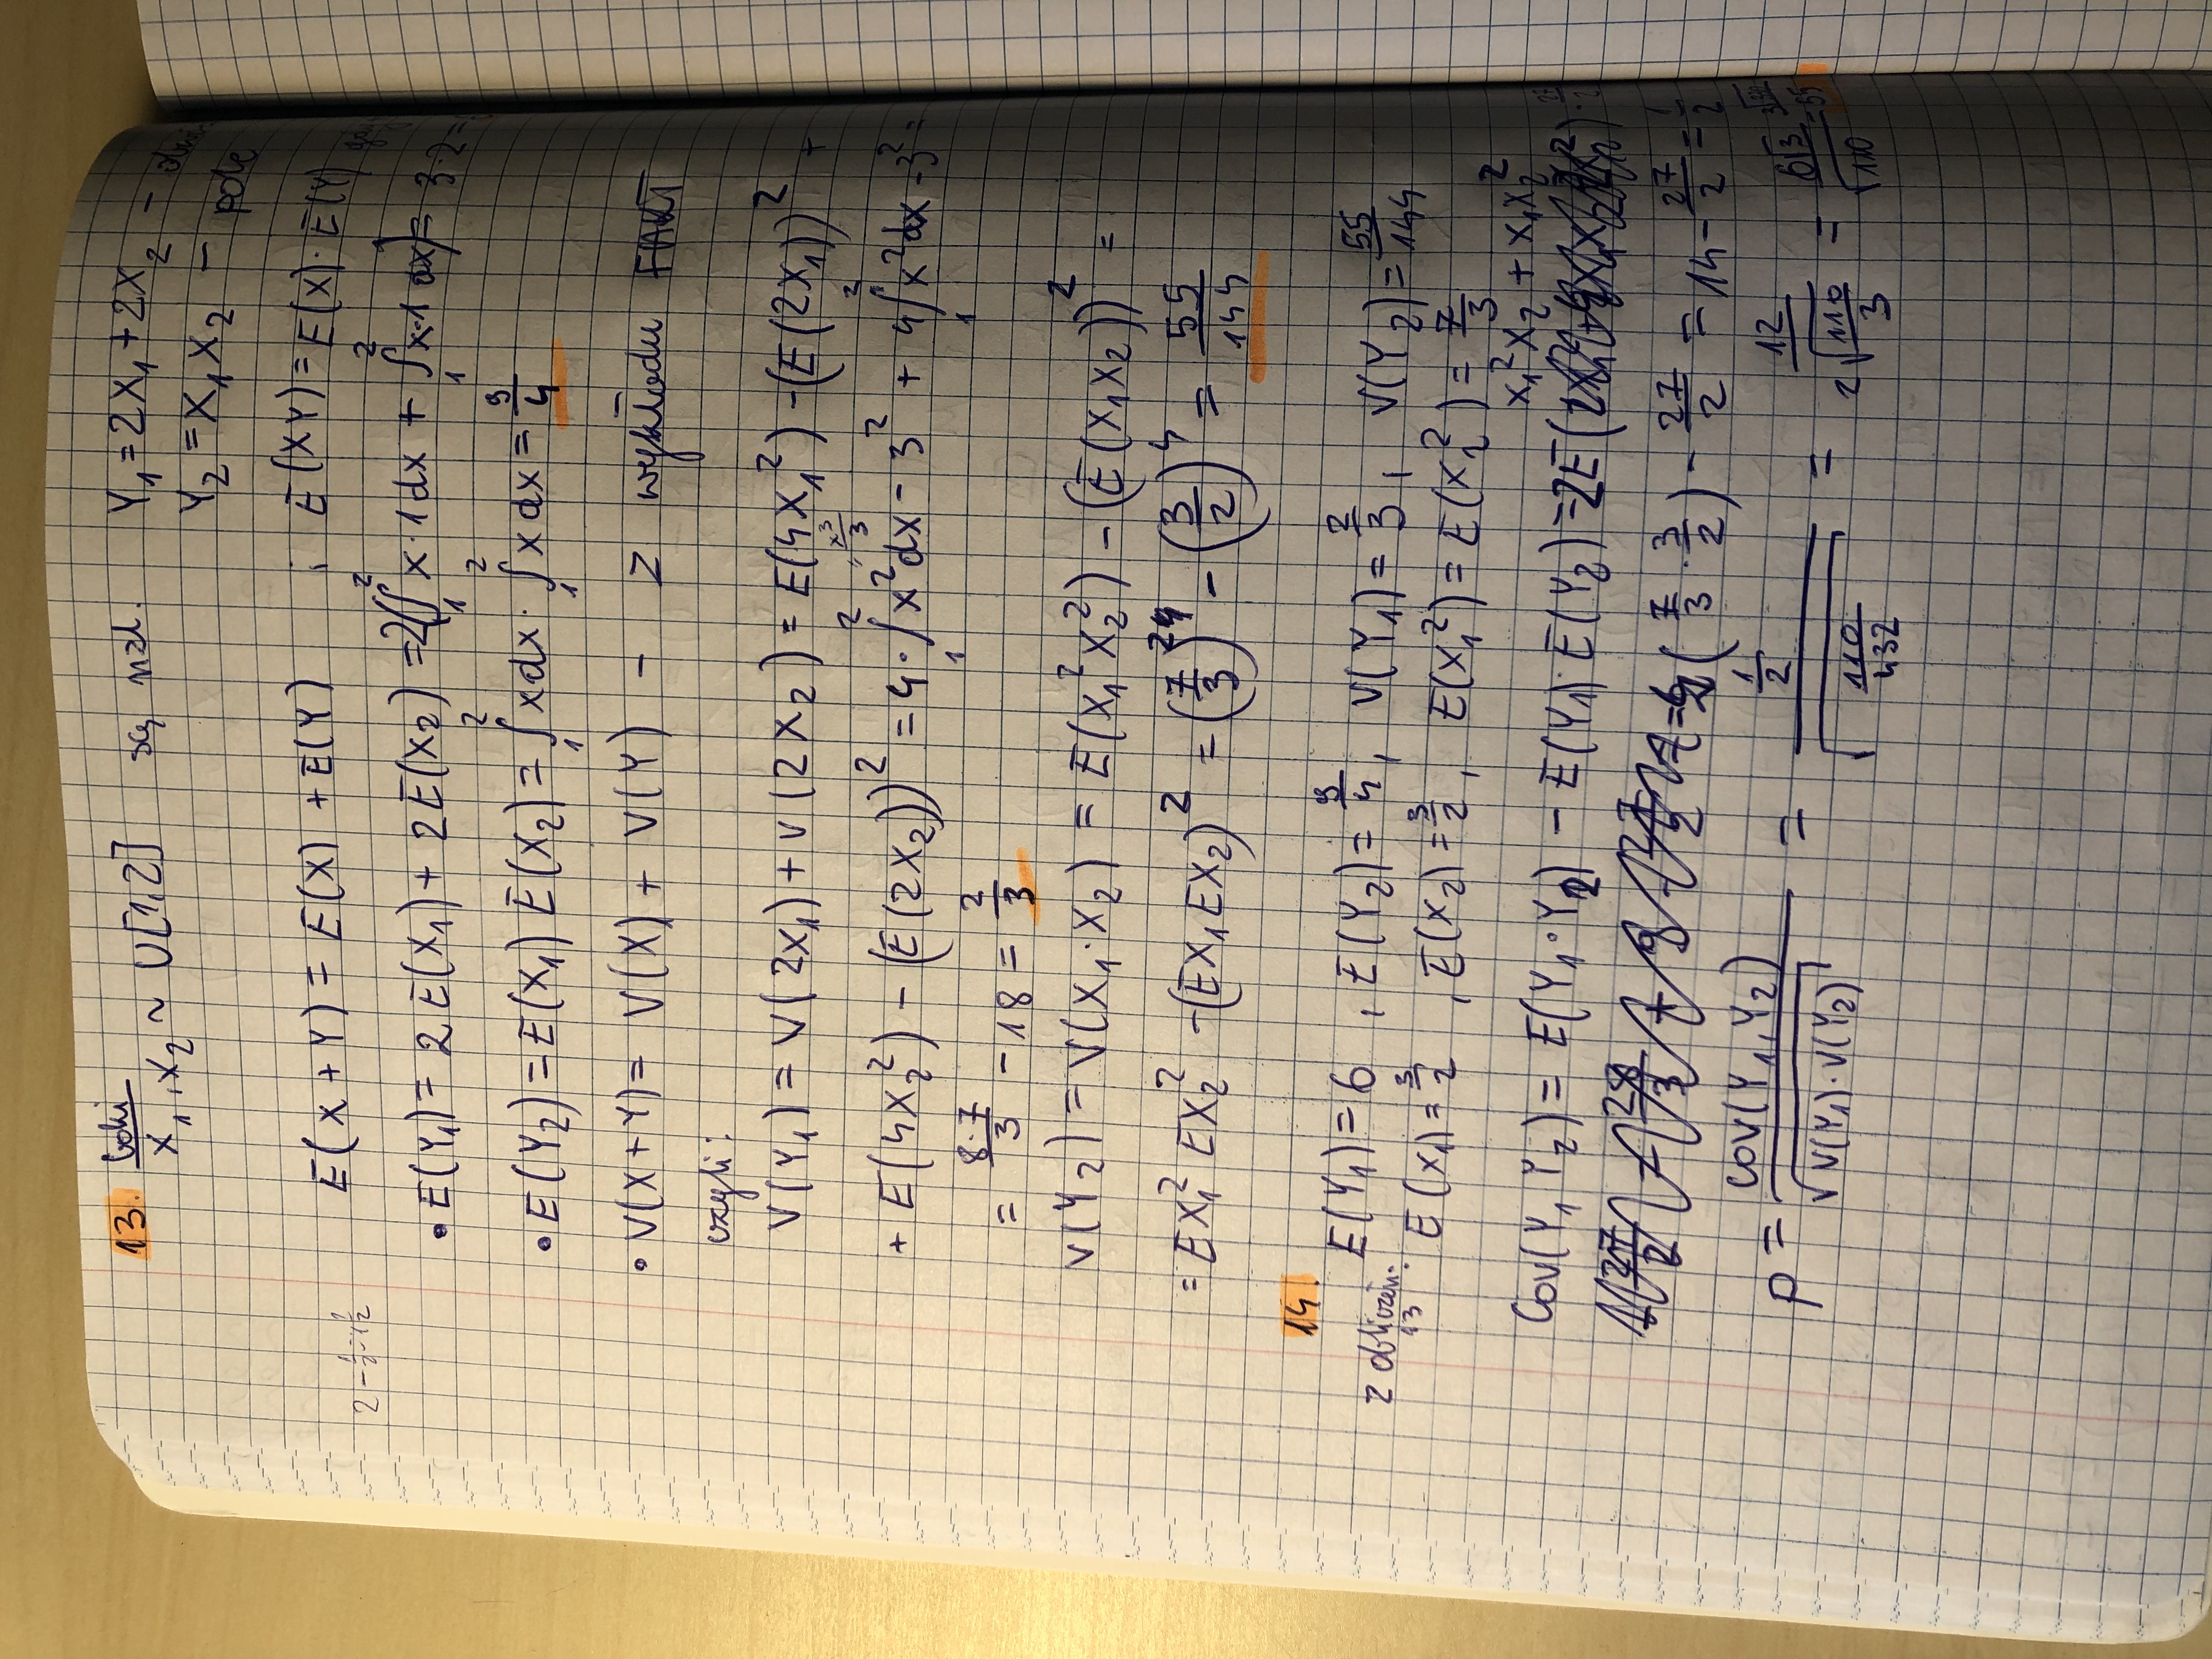 13. boki
X₁, X₂ ~ U[1,2] są nzl. Y₁ = 2X₁ + 2X₂ -
Y₂ = X₁X₂ - pole
E(X+Y) = E(X) + E(Y) ; E(XY) = E(X)·E(Y)
2 - 1/2 = 1 1/2
• E(Y₁) = 2E(X₁) + 2E(X₂) = 2(∫₁² x·1dx + ∫₁² x·1dx) = 3·2 =
• E(Y₂) = E(X₁) E(X₂) = ∫₁² x dx · ∫₁² x dx = 9/4
• V(X+Y) = V(X) + V(Y) - z wykładu FAKT
czyli:
V(Y₁) = V(2X₁) + V(2X₂) = E(4X₁²) - (E(2X₁))² +
x³/3
+ E(4X₂²) - (E(2X₂))² = 4·∫₁² x²dx - 3² + 4∫₁² x²dx - 3² =
= 8·7/3 - 18 = 2/3
V(Y₂) = V(X₁·X₂) = E(X₁²X₂²) - (E(X₁X₂))² =
= EX₁² EX₂² - (EX₁EX₂)² = (7/3)² - (3/2)⁴ = 55/144
14.
E(Y₁) = 6 , E(Y₂) = 9/4 , V(Y₁) = 2/3 , V(Y₂) = 55/144
z obliczeń: 13
E(X₁) = 3/2 , E(X₂) = 3/2 , E(X₁²) = E(X₂²) = 7/3
X₁²X₂ + X₁X₂²
Cov(Y₁ Y₂) = E(Y₁·Y₂) - E(Y₁)·E(Y₂) = 2E( ) - 27/2
= (7/3 · 3/2) - 27/2 = 14 - 27/2 = 1/2
ρ = cov(Y₁, Y₂)/√(V(Y₁)·V(Y₂)) = (1/2)/√(110/432) = 12/(2√(110/3)) = 6√3/√110 = 3√330/55